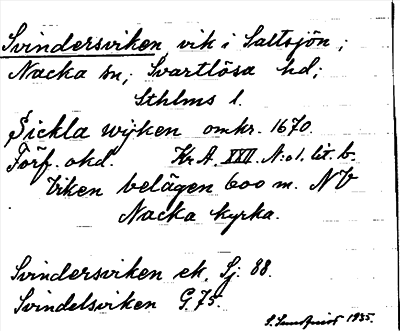 Svindersviken, vik i Saltsjön;
Nacka sn; Svartlösa hd;
Sthlms l.
Sickla wijken omkr. 1670.
Förf. okd. Kr. A. XXII. N:o 1. lit. b.
Viken belägen 600 m. NV
Nacka kyrka.
Svindersviken ek. Sj. 88.
Svindelsviken G. 75.
S. Lundqvist 1935.